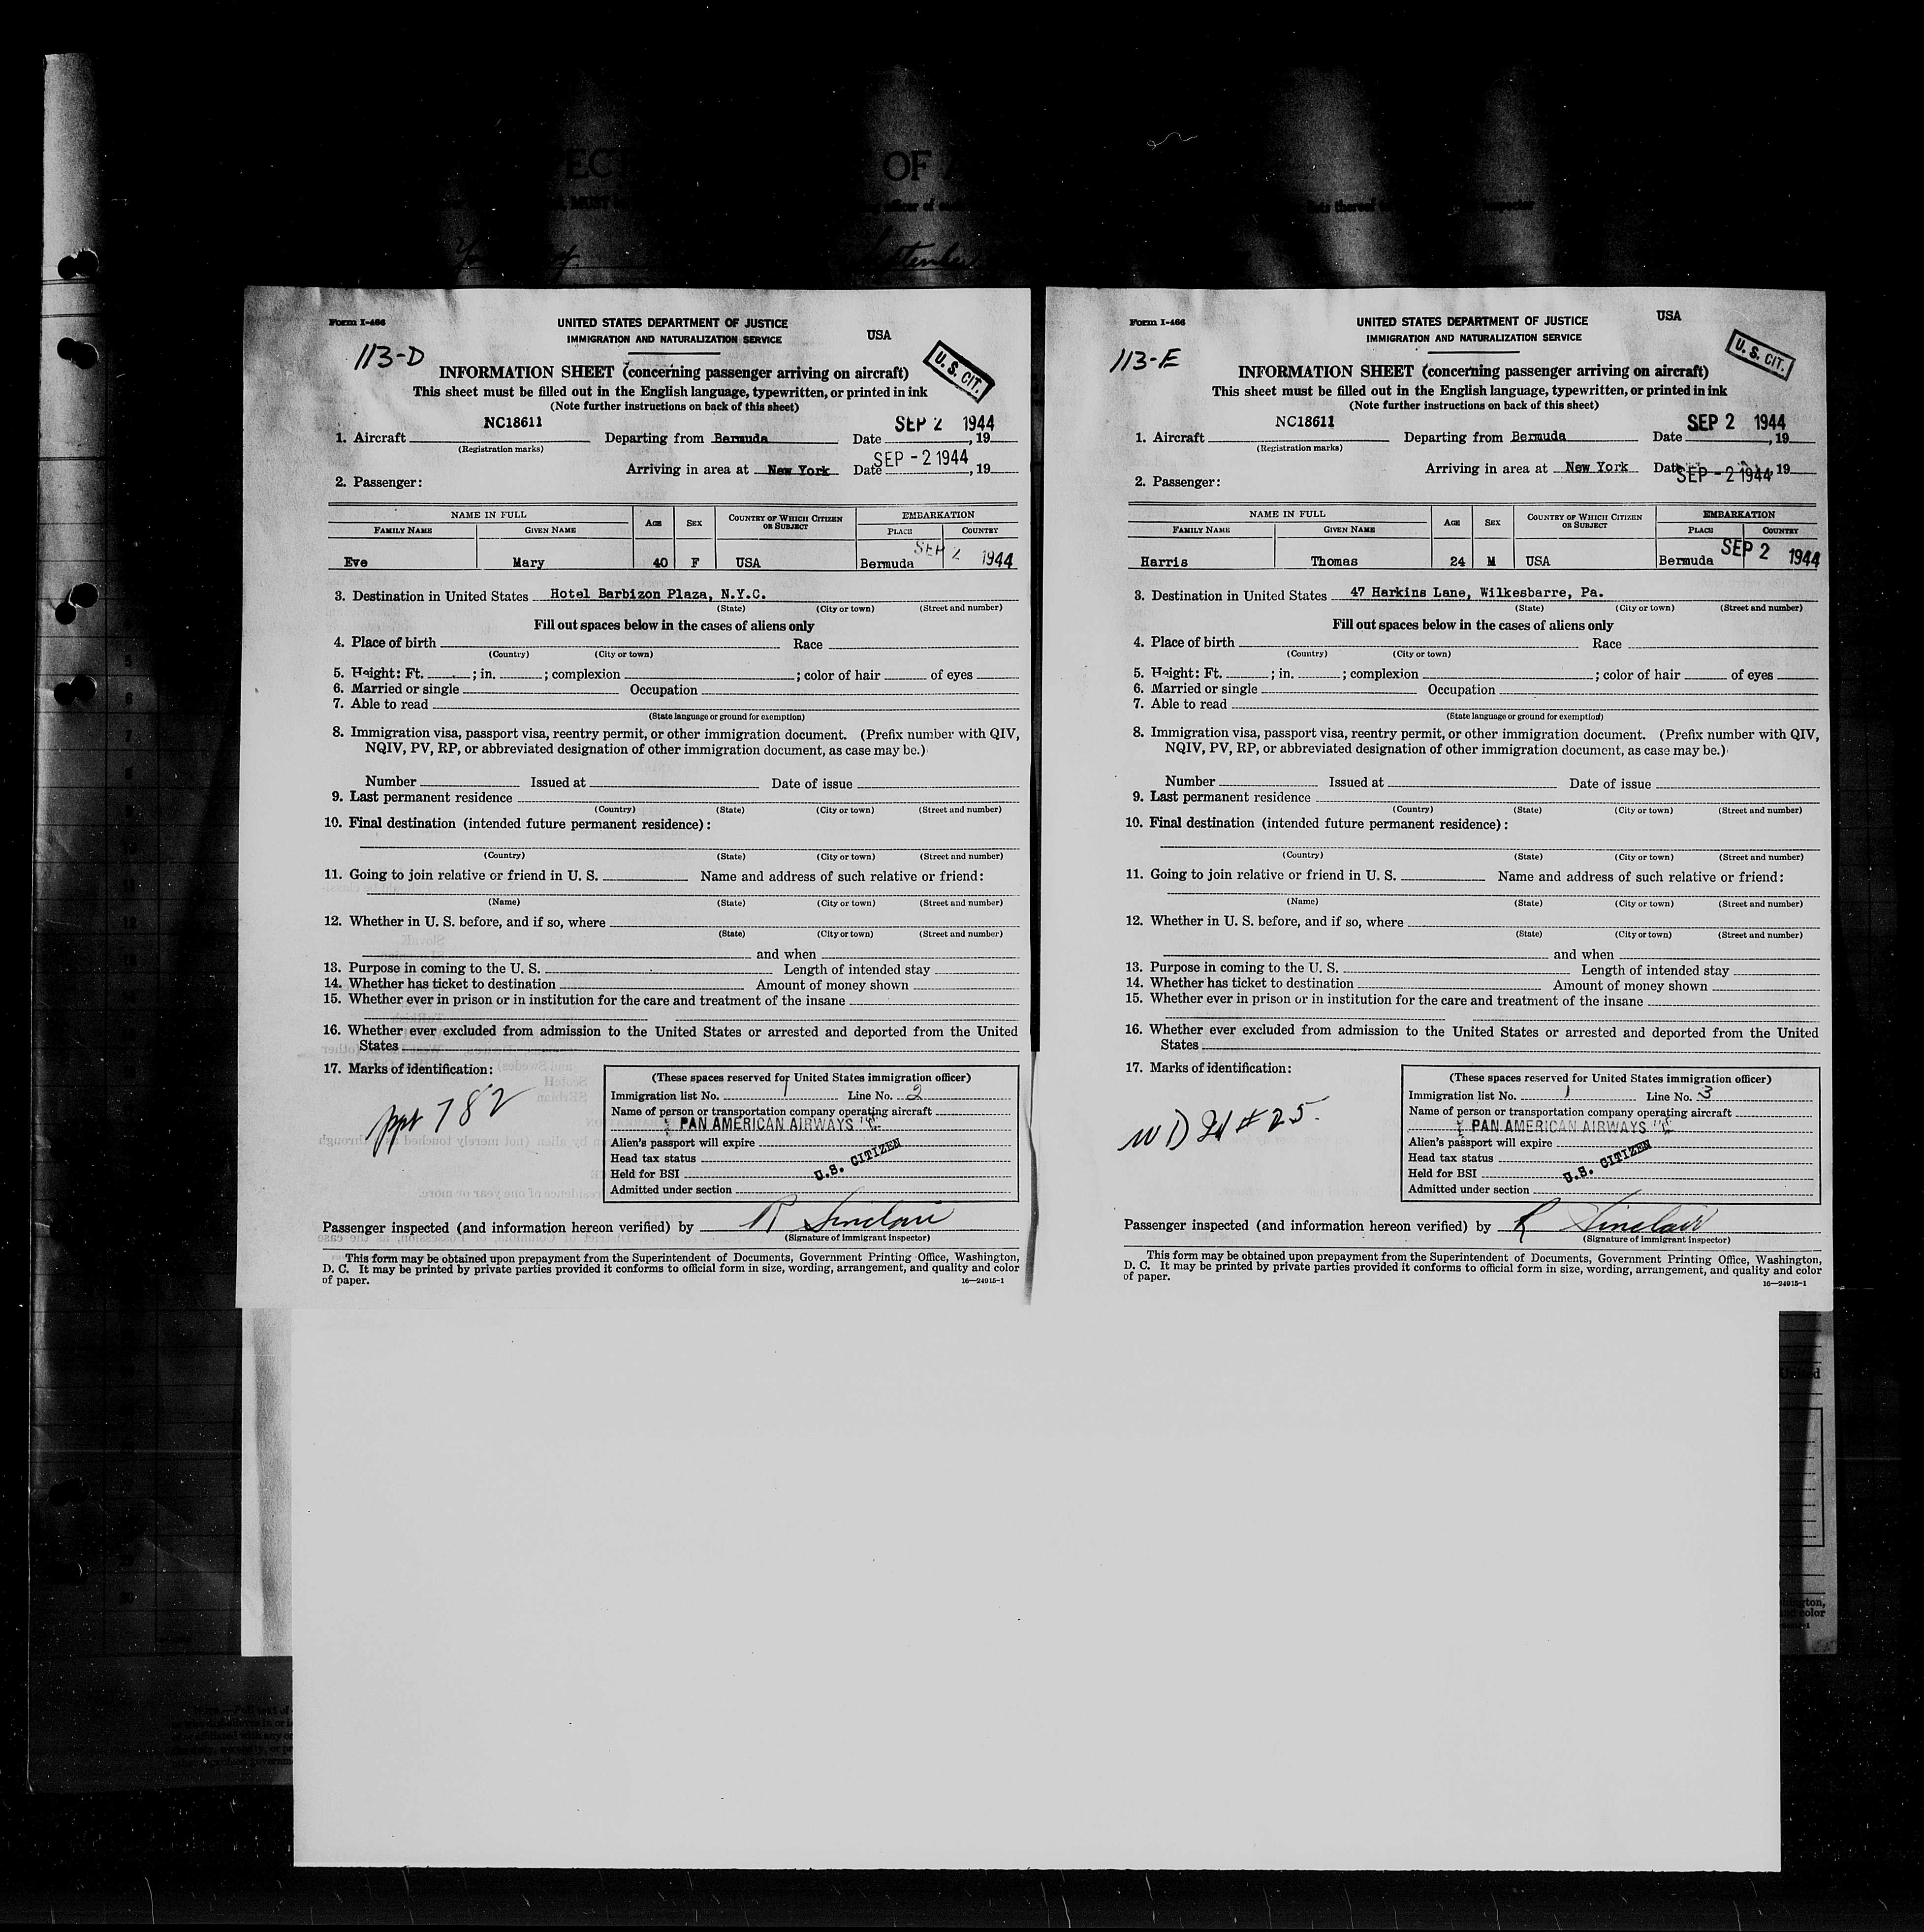 PECT OF A
MUST
officer of
thereof
Form I-466
UNITED STATES DEPARTMENT OF JUSTICE
IMMIGRATION AND NATURALIZATION SERVICE
USA
113-D
U. S. CIT.
INFORMATION SHEET (concerning passenger arriving on aircraft)
This sheet must be filled out in the English language, typewritten, or printed in ink
(Note further instructions on back of this sheet)
NC18611
SEP 2 1944
1. Aircraft Departing from Bermuda Date , 19
(Registration marks)
SEP - 2 1944
Arriving in area at New York Date , 19
2. Passenger:
NAME IN FULL
FAMILY NAME GIVEN NAME AGE SEX COUNTRY OF WHICH CITIZEN OR SUBJECT EMBARKATION
PLACE COUNTRY
SEP 2 1944
Eve Mary 40 F USA Bermuda
3. Destination in United States Hotel Barbizon Plaza, N.Y.C.
(State) (City or town) (Street and number)
Fill out spaces below in the cases of aliens only
4. Place of birth Race
(Country) (City or town)
5. Height: Ft. ; in. ; complexion ; color of hair of eyes
6. Married or single Occupation
7. Able to read
(State language or ground for exemption)
8. Immigration visa, passport visa, reentry permit, or other immigration document. (Prefix number with QIV,
NQIV, PV, RP, or abbreviated designation of other immigration document, as case may be.)
Number Issued at Date of issue
9. Last permanent residence
(Country) (State) (City or town) (Street and number)
10. Final destination (intended future permanent residence):
(Country) (State) (City or town) (Street and number)
11. Going to join relative or friend in U. S. Name and address of such relative or friend:
(Name) (State) (City or town) (Street and number)
12. Whether in U. S. before, and if so, where
(State) (City or town) (Street and number)
and when
13. Purpose in coming to the U. S. Length of intended stay
14. Whether has ticket to destination Amount of money shown
15. Whether ever in prison or in institution for the care and treatment of the insane
16. Whether ever excluded from admission to the United States or arrested and deported from the United
States
17. Marks of identification:
ppt 782
(These spaces reserved for United States immigration officer)
Immigration list No. 1 Line No. 2
Name of person or transportation company operating aircraft
PAN AMERICAN AIRWAYS
Alien's passport will expire
Head tax status
Held for BSI U.S. CITIZEN
Admitted under section
Passenger inspected (and information hereon verified) by R Sinclair
(Signature of immigrant inspector)
This form may be obtained upon prepayment from the Superintendent of Documents, Government Printing Office, Washington,
D. C. It may be printed by private parties provided it conforms to official form in size, wording, arrangement, and quality and color
of paper.
16—24915-1
Form I-466
UNITED STATES DEPARTMENT OF JUSTICE
IMMIGRATION AND NATURALIZATION SERVICE
USA
113-E
U. S. CIT.
INFORMATION SHEET (concerning passenger arriving on aircraft)
This sheet must be filled out in the English language, typewritten, or printed in ink
(Note further instructions on back of this sheet)
NC18611
SEP 2 1944
1. Aircraft Departing from Bermuda Date , 19
(Registration marks)
Arriving in area at New York Date , 19
SEP - 2 1944
2. Passenger:
NAME IN FULL
FAMILY NAME GIVEN NAME AGE SEX COUNTRY OF WHICH CITIZEN OR SUBJECT EMBARKATION
PLACE COUNTRY
SEP 2 1944
Harris Thomas 24 M USA Bermuda
3. Destination in United States 47 Harkins Lane, Wilkesbarre, Pa.
(State) (City or town) (Street and number)
Fill out spaces below in the cases of aliens only
4. Place of birth Race
(Country) (City or town)
5. Height: Ft. ; in. ; complexion ; color of hair of eyes
6. Married or single Occupation
7. Able to read
(State language or ground for exemption)
8. Immigration visa, passport visa, reentry permit, or other immigration document. (Prefix number with QIV,
NQIV, PV, RP, or abbreviated designation of other immigration document, as case may be.)
Number Issued at Date of issue
9. Last permanent residence
(Country) (State) (City or town) (Street and number)
10. Final destination (intended future permanent residence):
(Country) (State) (City or town) (Street and number)
11. Going to join relative or friend in U. S. Name and address of such relative or friend:
(Name) (State) (City or town) (Street and number)
12. Whether in U. S. before, and if so, where
(State) (City or town) (Street and number)
and when
13. Purpose in coming to the U. S. Length of intended stay
14. Whether has ticket to destination Amount of money shown
15. Whether ever in prison or in institution for the care and treatment of the insane
16. Whether ever excluded from admission to the United States or arrested and deported from the United
States
17. Marks of identification:
WD # 25
(These spaces reserved for United States immigration officer)
Immigration list No. 1 Line No. 3
Name of person or transportation company operating aircraft
PAN AMERICAN AIRWAYS
Alien's passport will expire
Head tax status
Held for BSI U.S. CITIZEN
Admitted under section
Passenger inspected (and information hereon verified) by R Sinclair
(Signature of immigrant inspector)
This form may be obtained upon prepayment from the Superintendent of Documents, Government Printing Office, Washington,
D. C. It may be printed by private parties provided it conforms to official form in size, wording, arrangement, and quality and color
of paper.
16—24915-1